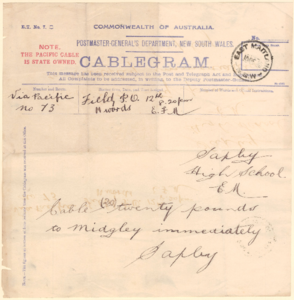 COMMONWEALTH OF AUSTRALIA.
POSTMASTER-GENERAL'S DEPARTMENT, NEW SOUTH WALES.
NOTE.
THE PACIFIC CABLE
IS STATE OWNED.
CABLEGRAM
EAST MAITLAND
Via Pacific Field P.O. 12th 8-20pm
No 73 11 words E.F.M
Sapley
High School
E.M
Cable twenty pounds
to Midgley immediately
Sapley